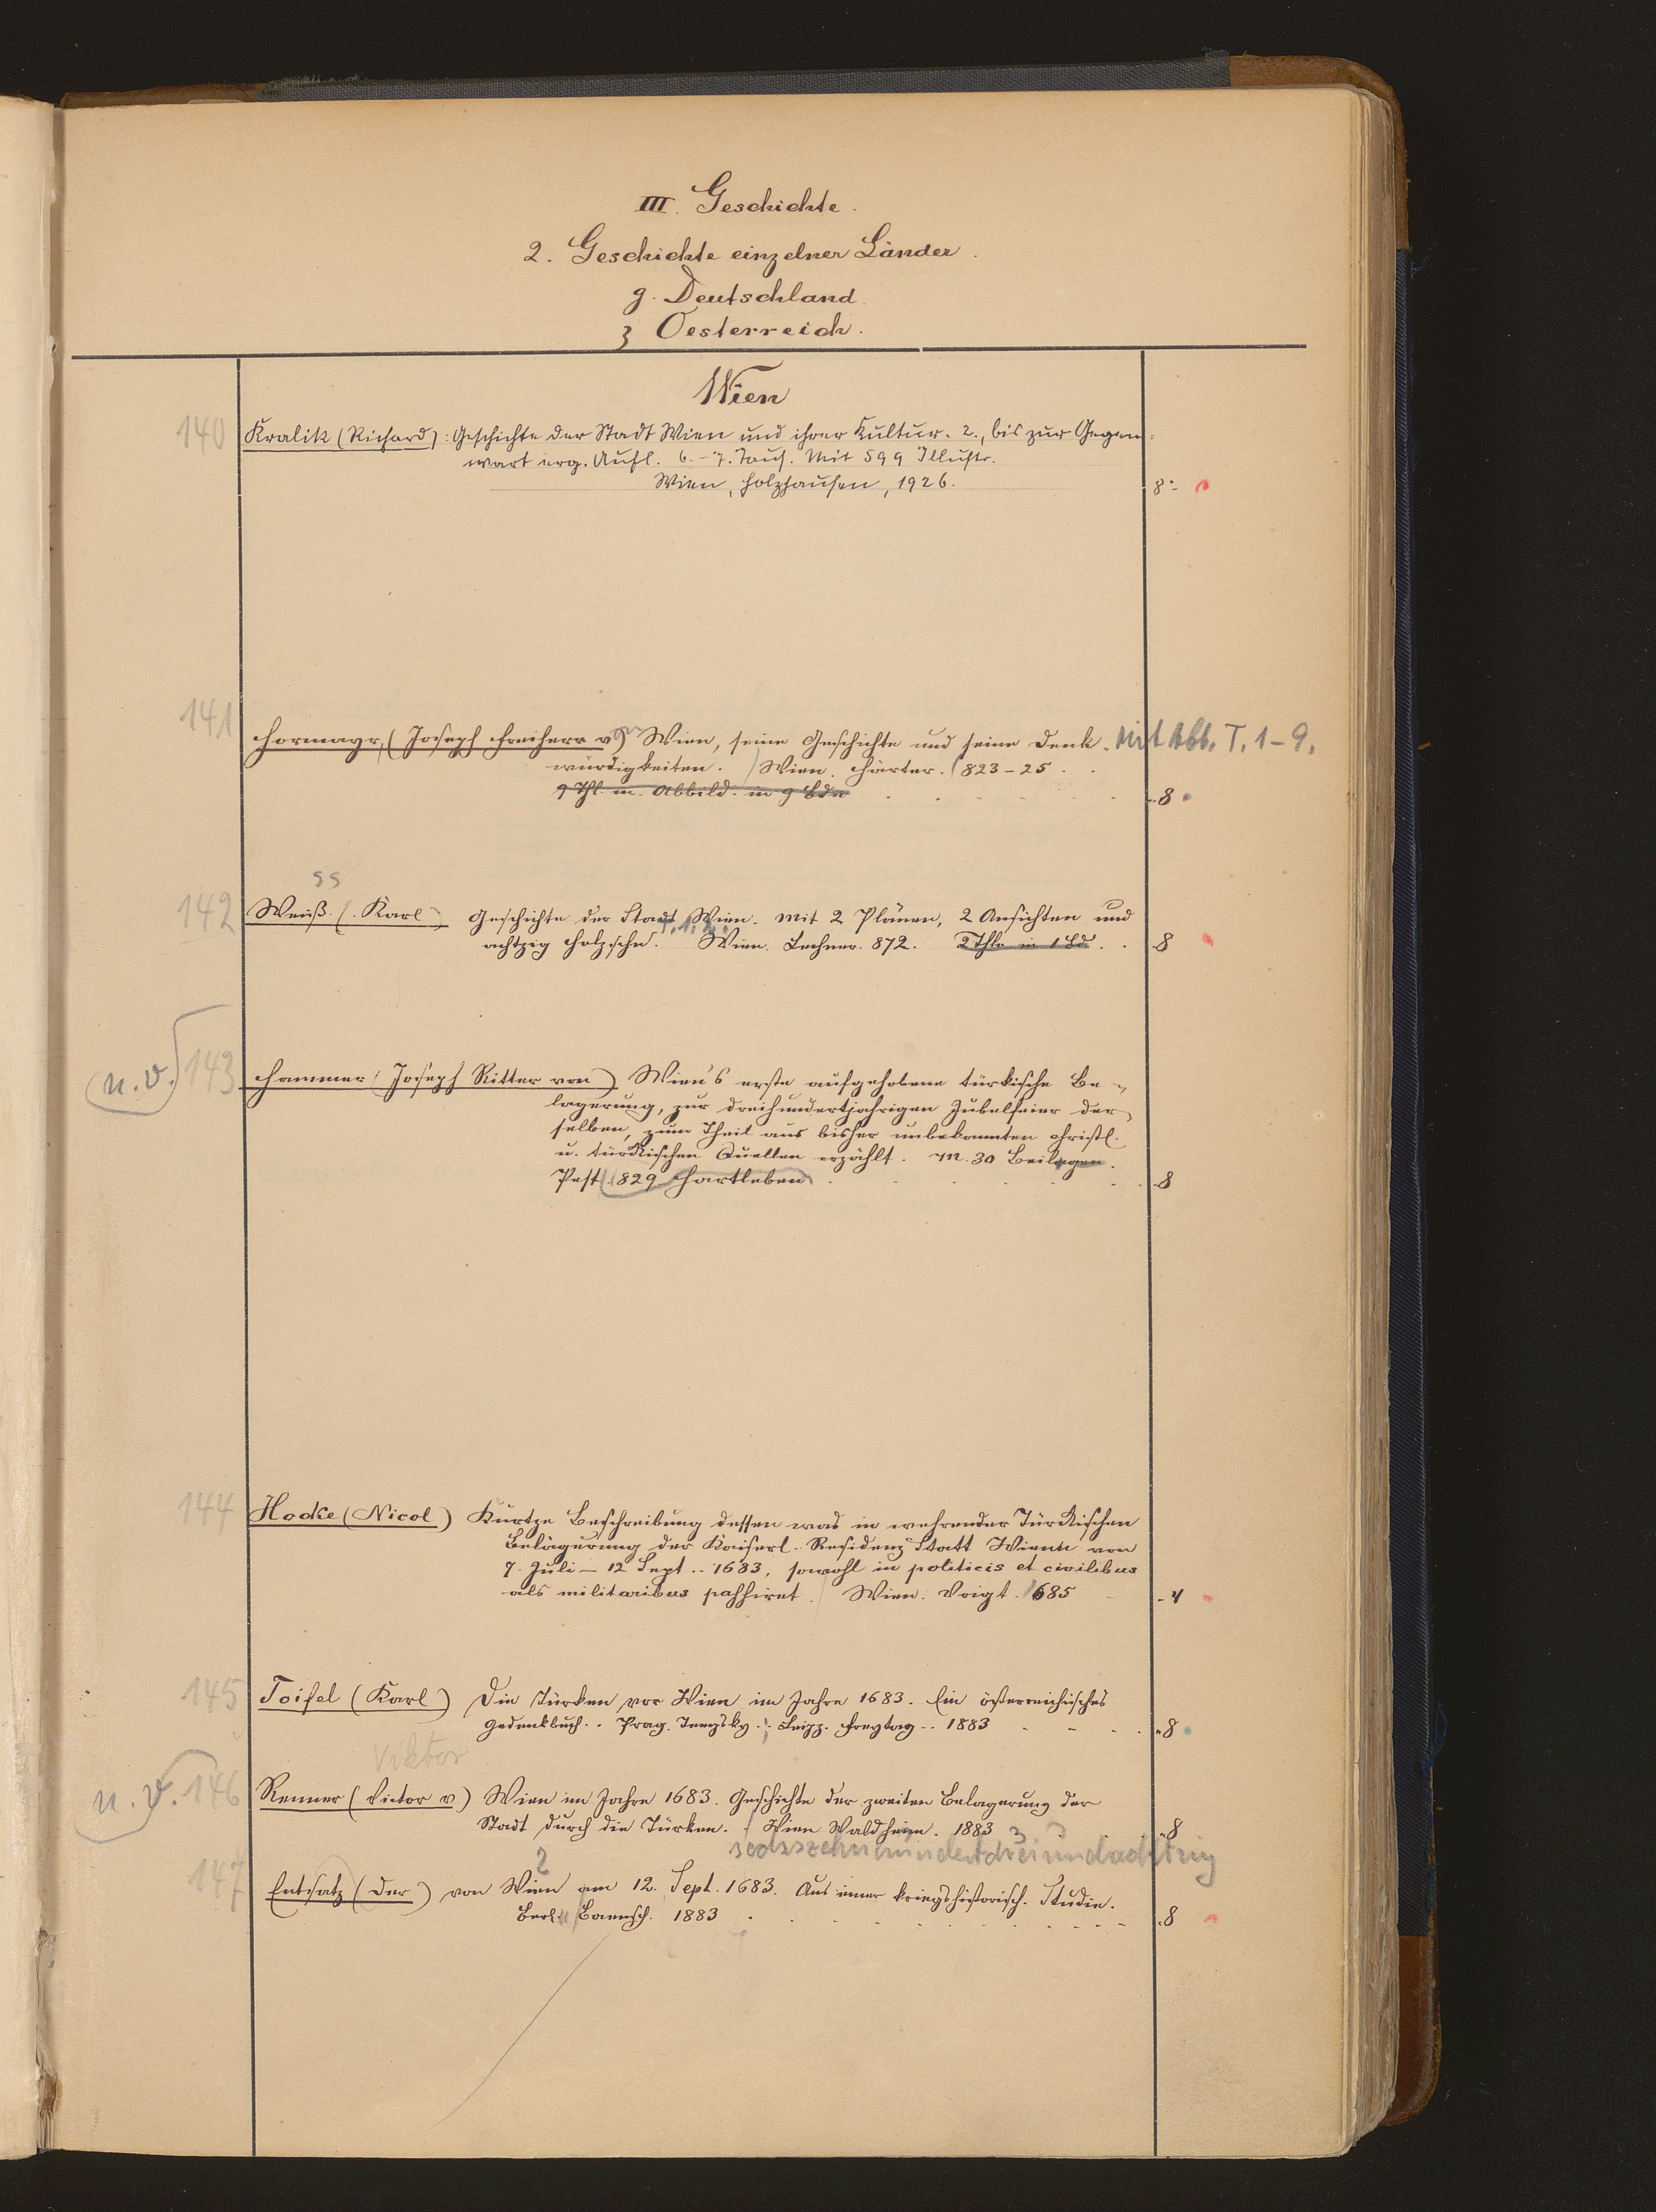 III. Geschichte.
2. Geschichte einzelner Länder.
g. Deutschland.
3 Oesterreich.
Wien
140 Kralik (Richard): Geschichte der Stadt Wien und ihrer Kultur. 2., bis zur Gegen=
wart erg. Aufl. 6.-7. Taus. Mit 599 Illustr.
Wien, Holzhausen, 1926. 8°
141 Hormayr, (Joseph Freiherr v) Wien, seine Geschichte und seine Denk- Mit Abb. T. 1-9.
würdigkeiten. Wien. Härter. 823-25.
9 Thl. m. Abbild. in 9 Bdn 8
ss
142 Weiß (Karl) Geschichte der Stadt Wien. Mit 2 Plänen, 2 Ansichten und
T. 1. 2.
achtzig Holzschn. Wien. Lechner. 872. 2 Thle in 1 Bd. 8
n. v. 143 Hammer (Joseph Ritter von) Wien's erste aufgehobene türkische Be-
lagerung, zur dreihundertjährigen Jubelfeier der
selben, zum Theil aus bisher unbekannten christl.
u. türkischen Quellen erzählt. M. 30 Beilagen.
Pest 829 Hartleben 8
144 Hocke (Nicol) Kurtze Beschreibung dessen was in wehrender Türckischen
Belägerung der Kaiserl. Residenz Statt Wienn von
7. Juli - 12 Sept. 1683, sowohl in politicis et civilibus
als militaribus passiret. Wien. Voigt. 1685 4
145 Toifel (Karl) Die Türken vor Wien im Jahre 1683. Ein österreichisches
Gedenkbuch. Prag. Tempsky.; Leipz. Freytag. 1883 8
Viktor
n. v. 146 Renner (Victor v.) Wien im Jahre 1683. Geschichte der zweiten Belagerung der
Stadt durch die Türken. Wien Waldheim. 1883 8
2 sechszehnhundertdreiundachtzig 3
147 Entsatz (Der) von Wien am 12. Sept. 1683. Aus einer kriegshistorisch. Studie.
Berl. Baensch. 1883 8